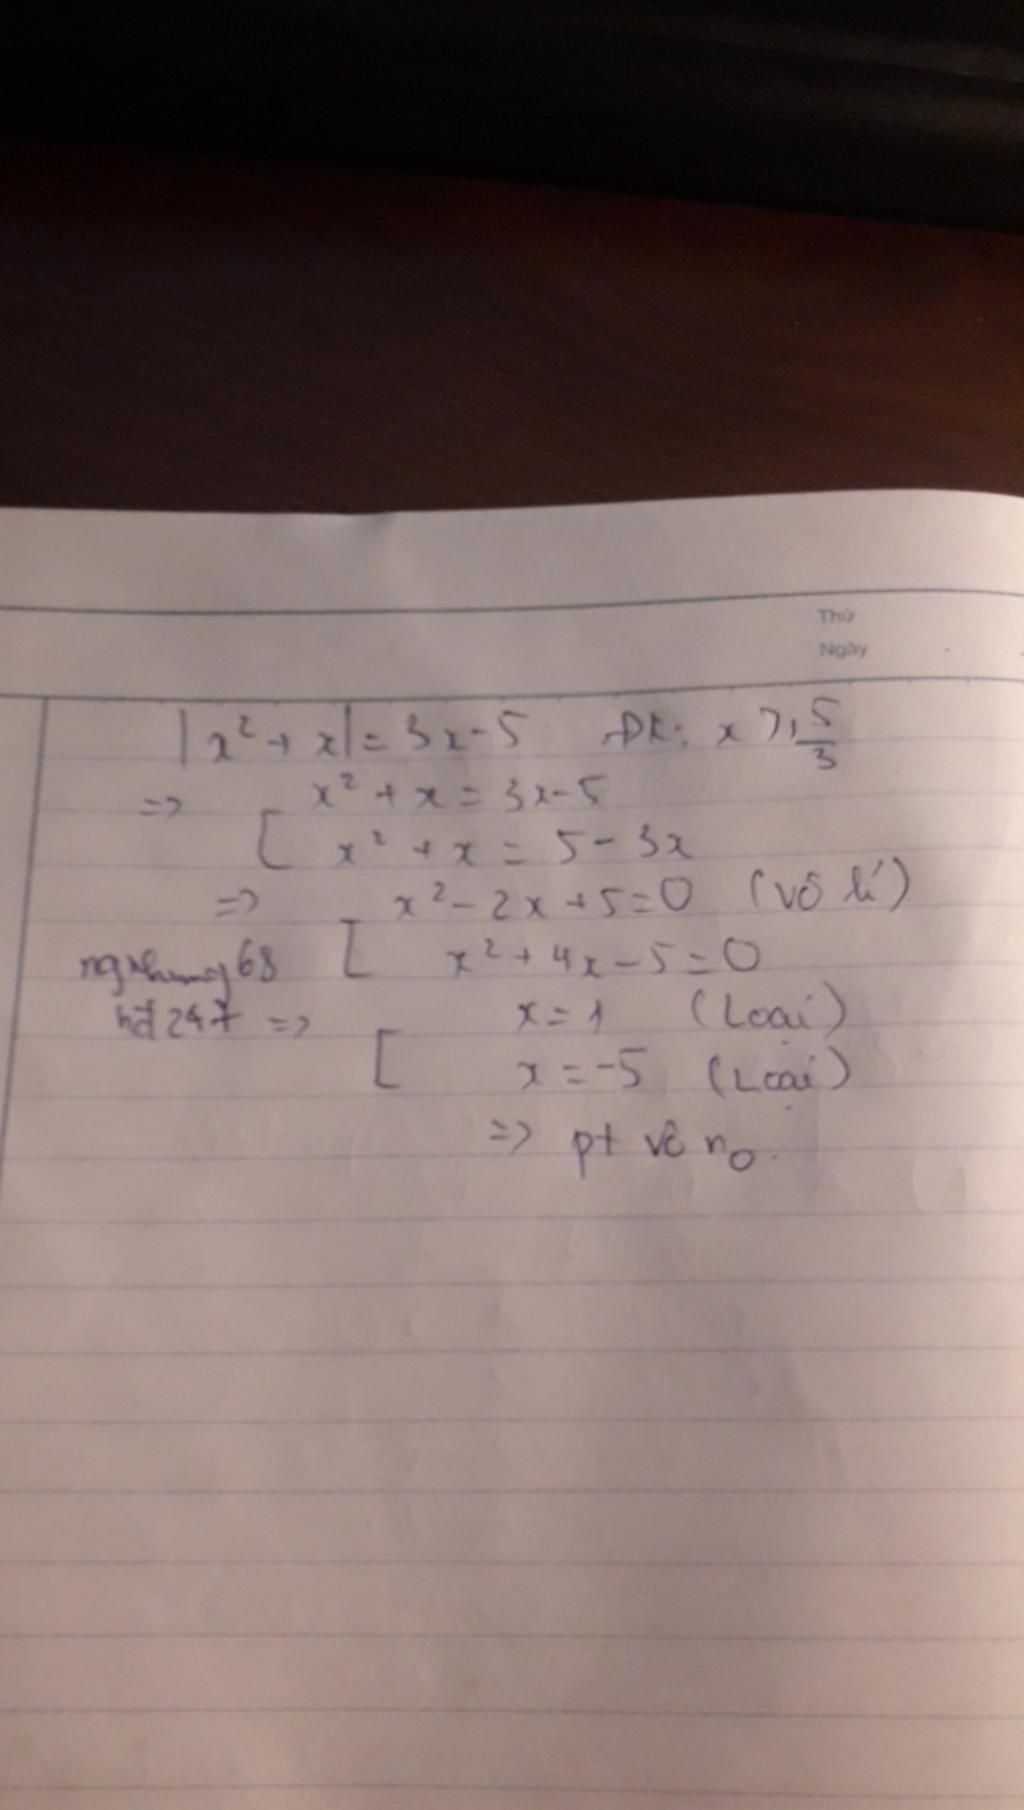 Thứ
Ngày
|x² + x| = 3x - 5 ĐK: x ≥ 5/3
=> [ x² + x = 3x - 5
x² + x = 5 - 3x
=> [ x² - 2x + 5 = 0 (vô lí)
x² + 4x - 5 = 0
ngnhung68
hđ247 => [ x = 1 (Loại)
x = -5 (Loại)
=> pt vô n0.